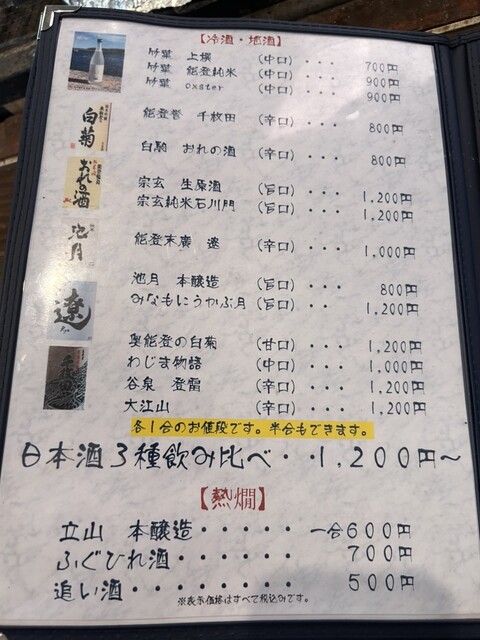 【冷酒・地酒】
竹葉 上撰 (中口)・・・ 700円
竹葉 能登純米 (中口)・・・ 900円
竹葉 oyster (中口)・・・ 900円
能登誉 千枚田 (辛口)・・・ 800円
白駒 おれの酒 (辛口)・・・ 800円
宗玄 生原酒 (旨口)・・・ 1,200円
宗玄純米石川門 (旨口)・・・ 1,200円
能登末廣 遼 (辛口)・・・ 1,000円
池月 本醸造 (旨口)・・・ 800円
みなもにうかぶ月 (旨口)・・ 1,200円
奥能登の白菊 (甘口)・・・ 1,200円
わじま物語 (中口)・・・ 1,000円
谷泉 登雷 (辛口)・・・ 1,200円
大江山 (辛口)・・・ 1,200円
各1合のお値段です。半合もできます。
日本酒3種飲み比べ・・1,200円～
【熱燗】
立山 本醸造・・・・・ 一合600円
ふぐひれ酒・・・・・・ 700円
追い酒・・・・・・・・ 500円
※表示価格はすべて税込みです。
白菊
おれの酒
池月
遼
Ryo
千枚田